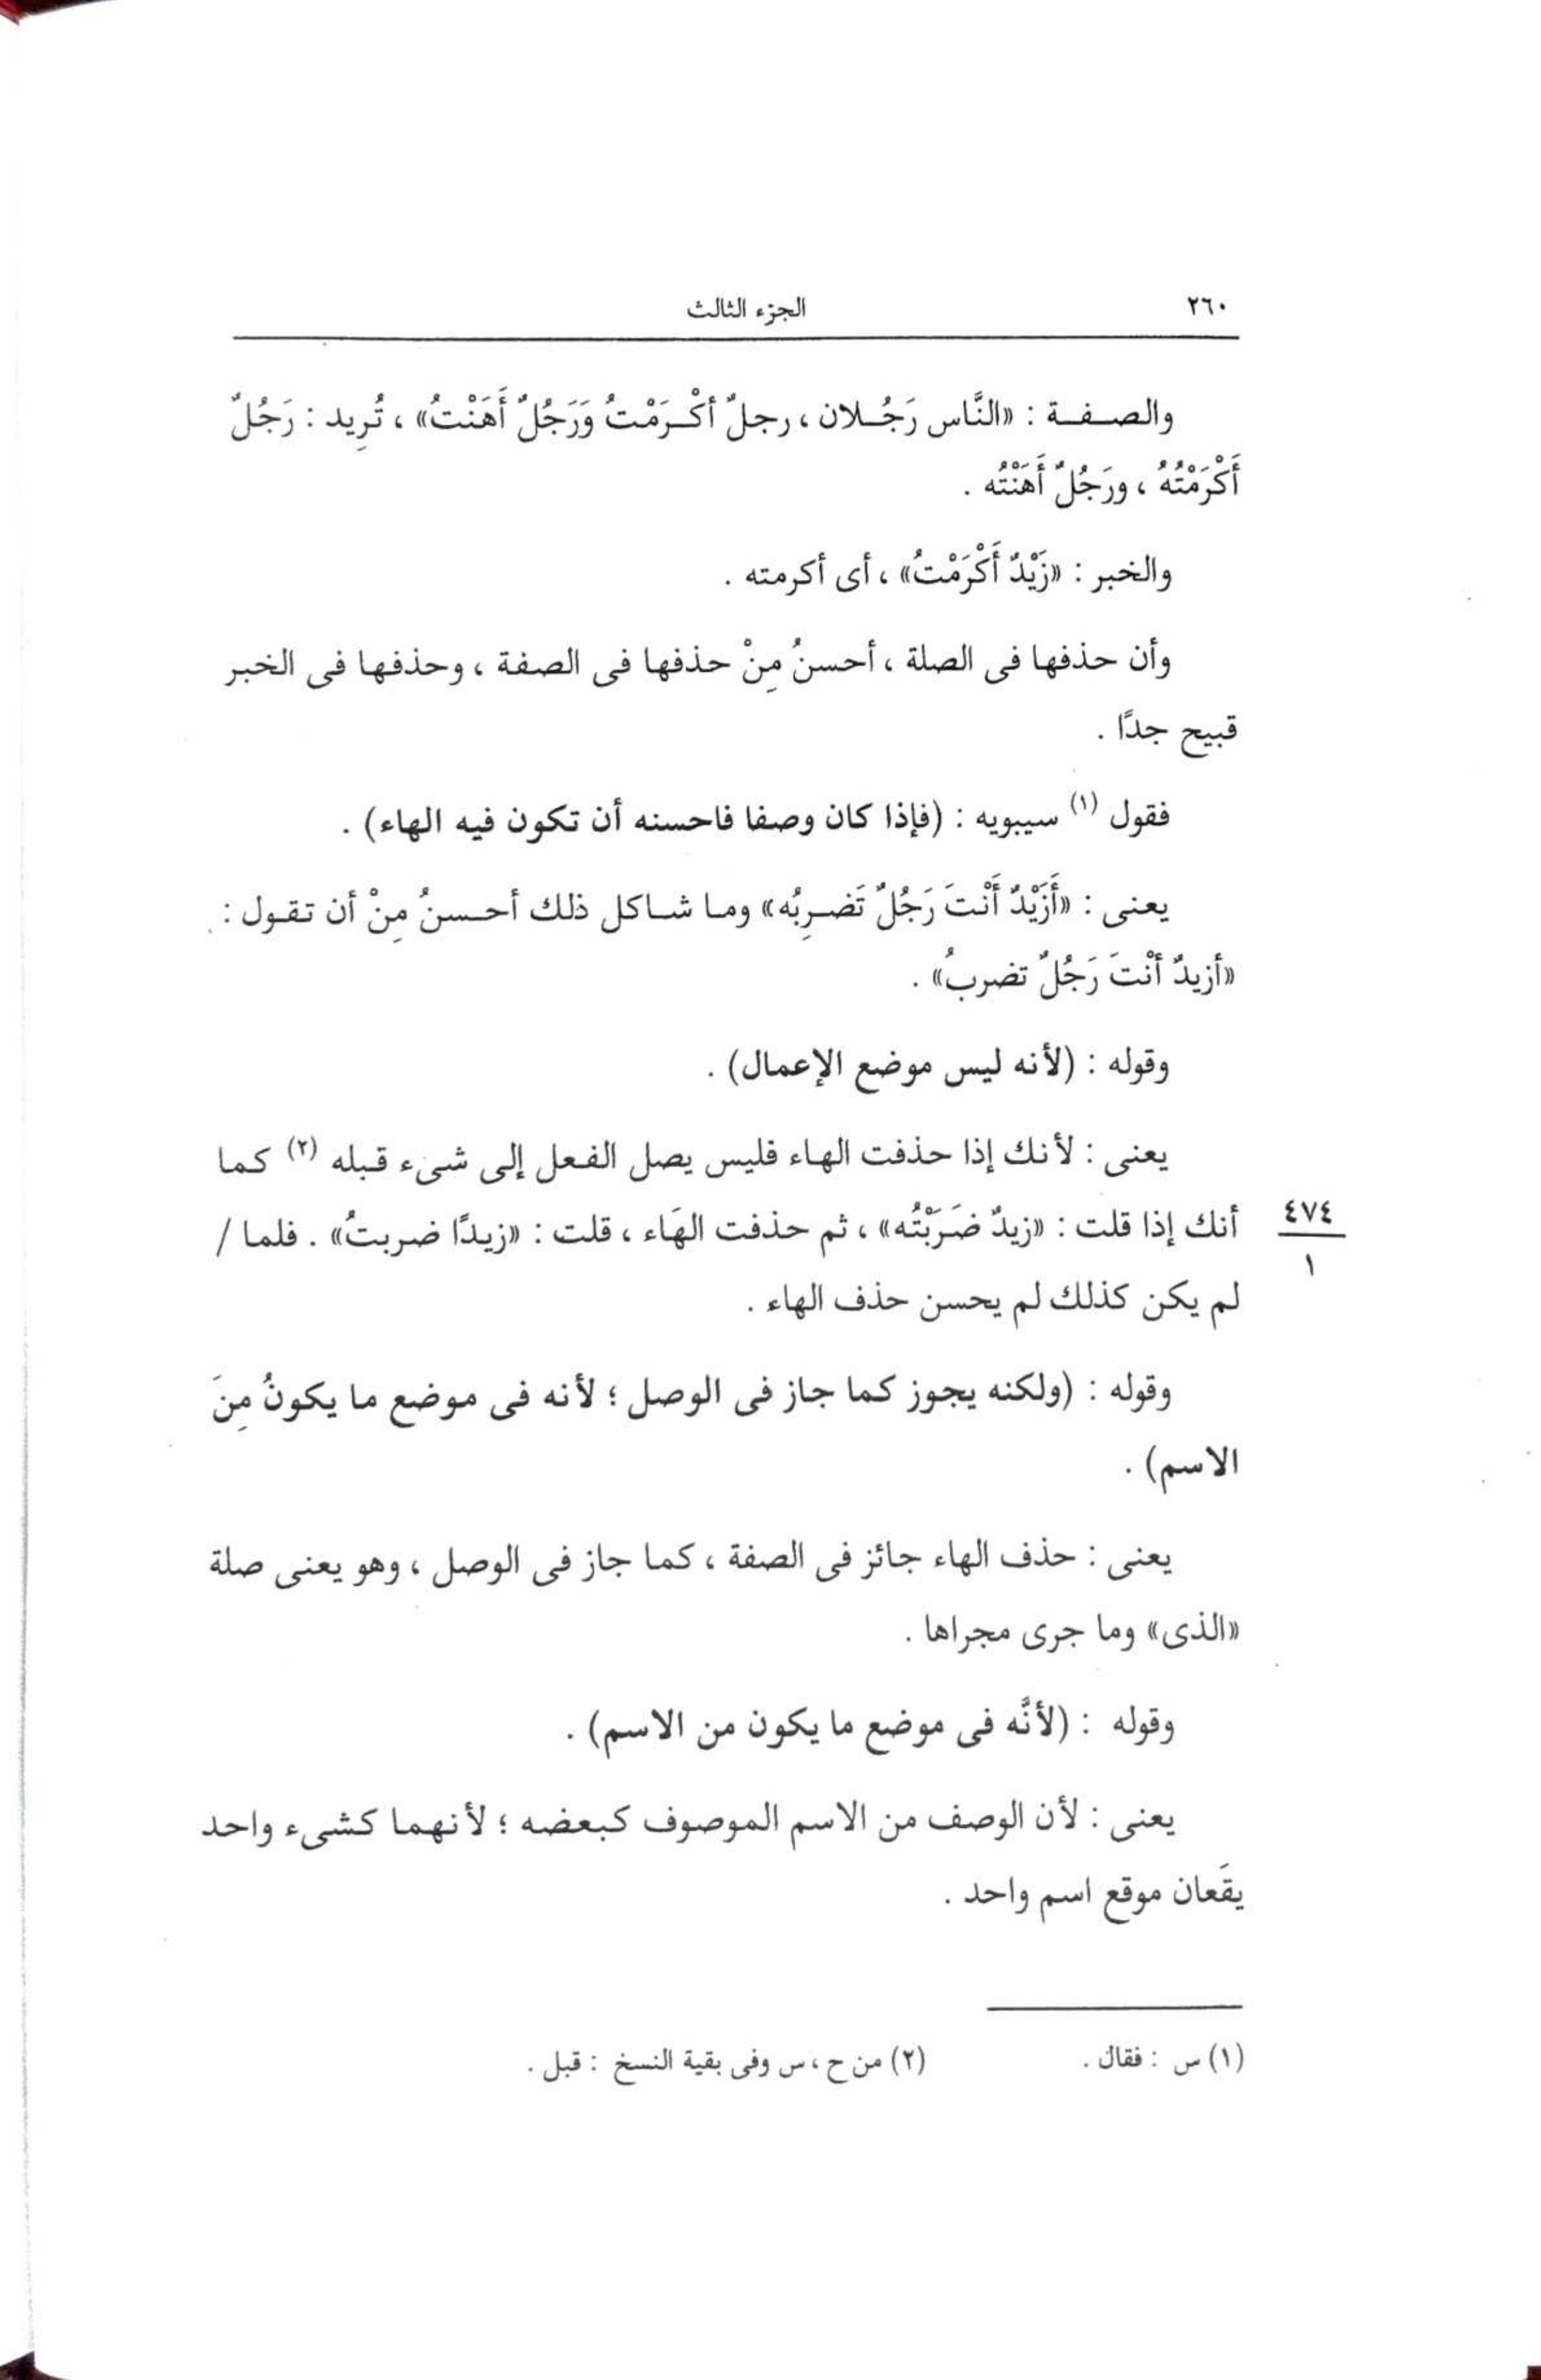 ٢٦٠
الجزء الثالث
والصفة : «النَّاس رَجُلان ، رجلٌ أكْرَمْتُ وَرَجُلٌ أَهَنْتُ» ، تُرِيد : رَجُلٌ
أَكْرَمْتُهُ ، ورَجُلٌ أَهَنْتُه .
والخبر : «زَيْدٌ أَكْرَمْتُ» ، أى أكرمته .
وأن حذفها فى الصلة ، أحسنُ مِنْ حذفها فى الصفة ، وحذفها فى الخبر
قبيح جدًا .
فقول (١) سيبويه : (فإذا كان وصفا فاحسنه أن تكون فيه الهاء) .
يعنى : «أَزَيْدٌ أَنْتَ رَجُلٌ تَضرِبُه» وما شاكل ذلك أحسنُ مِنْ أن تقول :
«أزيدٌ أنْتَ رَجُلٌ تضربُ» .
وقوله : (لأنه ليس موضع الإعمال) .
يعنى : لأنك إذا حذفت الهاء فليس يصل الفعل إلى شىء قبله (٢) كما
أنك إذا قلت : «زيدٌ ضَرَبْتُه» ، ثم حذفت الهَاء ، قلت : «زيدًا ضربتُ» . فلما /
٤٧٤
١
لم يكن كذلك لم يحسن حذف الهاء .
وقوله : (ولكنه يجوز كما جاز فى الوصل ؛ لأنه فى موضع ما يكونُ مِنَ
الاسم) .
يعنى : حذف الهاء جائز فى الصفة ، كما جاز فى الوصل ، وهو يعنى صلة
«الذى» وما جرى مجراها .
وقوله : (لأنَّه فى موضع ما يكون من الاسم) .
يعنى : لأن الوصف من الاسم الموصوف كبعضه ؛ لأنهما كشىء واحد
يقَعان موقع اسم واحد .
(١) س : فقال .
(٢) من ح ، س وفى بقية النسخ : قبل .